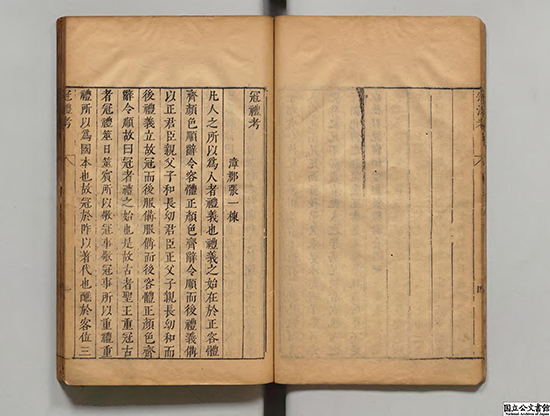 冠禮考
漳郡張一棟
凡人之所以為人者禮義也禮義之始在於正容體
齊顏色順辭令容體正顏色齊辭令順而後禮義備
以正君臣親父子和長幼君臣正父子親長幼和而
後禮義立故冠而後服備服備而後容體正顏色齊
辭令順故曰冠者禮之始也是故古者聖王重冠古
者冠禮筮日筮賓所以敬冠事敬冠事所以重禮重
禮所以為國本也故冠於阼以著代也醮於客位三
冠禮考
国立公文書館
National Archives of Japan